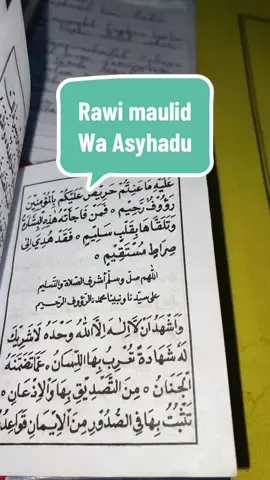 Rawi maulid
Wa Asyhadu
عَلَيْهِ مَا عَنِتُّمْ حَرِيصٌ عَلَيْكُمْ بِالْمُؤْمِنِينَ
رَؤُوفٌ رَحِيمٌ ۝ فَمَنْ فَاجَأَتْهُ هٰذِهِ الْبِشَارَةُ
وَتَلَقَّاهَا بِقَلْبٍ سَلِيمٍ ۝ فَقَدْ هُدِيَ إِلَى
صِرَاطٍ مُسْتَقِيمٍ ۝
اللهم صل وسلم أشرف الصلاة والتسليم
على سيدنا ونبينا محمد الرؤوف الرحيم
وَأَشْهَدُ أَنْ لَا إِلٰهَ إِلَّا اللهُ وَحْدَهُ لَا شَرِيكَ
لَهُ شَهَادَةً تُعْرِبُ بِهَا اللِّسَانُ ۝ عَمَّا تَضَمَّنَهُ
الْجَنَانُ ۝ مِنَ التَّصْدِيقِ بِهَا وَالْإِذْعَانِ ۝
تَثْبُتُ بِهَا فِي الصُّدُورِ مِنَ الْإِيمَانِ قَوَاعِدُهُ